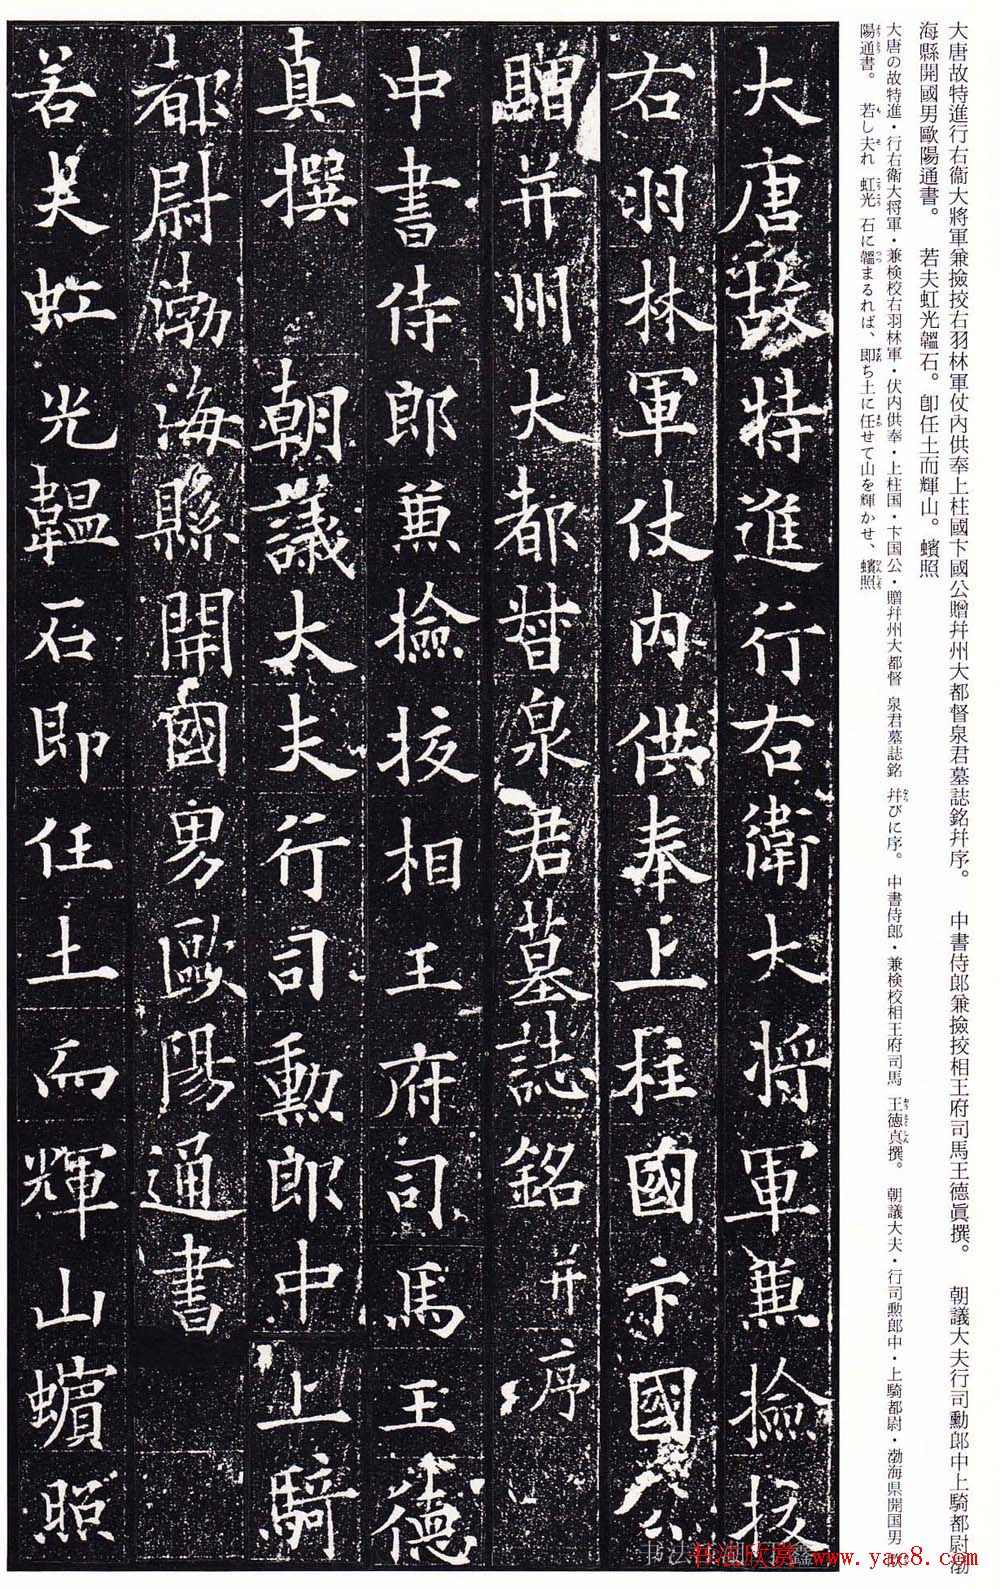 大唐故特進行右衞大將軍兼撿挍右羽林軍仗内供奉上柱國卞國公贈幷州大都督泉君墓誌銘幷序。 中書侍郎兼撿挍相王府司馬王德眞撰。 朝議大夫行司勳郎中上騎都尉渤
海縣開國男歐陽通書。 若夫虹光韞石。卽任土而輝山。蠙照
大唐の故特進・行右衛大将軍・兼検校右羽林軍・伏内供奉・上柱国・卞国公・贈幷州大都督 泉君墓誌銘 幷びに序。 中書侍郎・兼検校相王府司馬 王徳貞撰。 朝議大夫・行司勲郎中・上騎都尉・渤海県開国男 欧
陽通書。 若し夫れ 虹光 石に韞まるれば、即ち土に任せて山を輝かせ、蠙照
大唐故特進行右衛大将軍兼撿挍
右羽林軍仗内供奉上柱國卞國公
贈并州大都督泉君墓誌銘并序
中書侍郎兼撿挍相王府司馬王德
真撰 朝議大夫行司勳郎中上騎
都尉渤海縣開國男歐陽通書
若夫虹光韞石即任土而輝山蠙照
书法欣赏 www.yac8.com